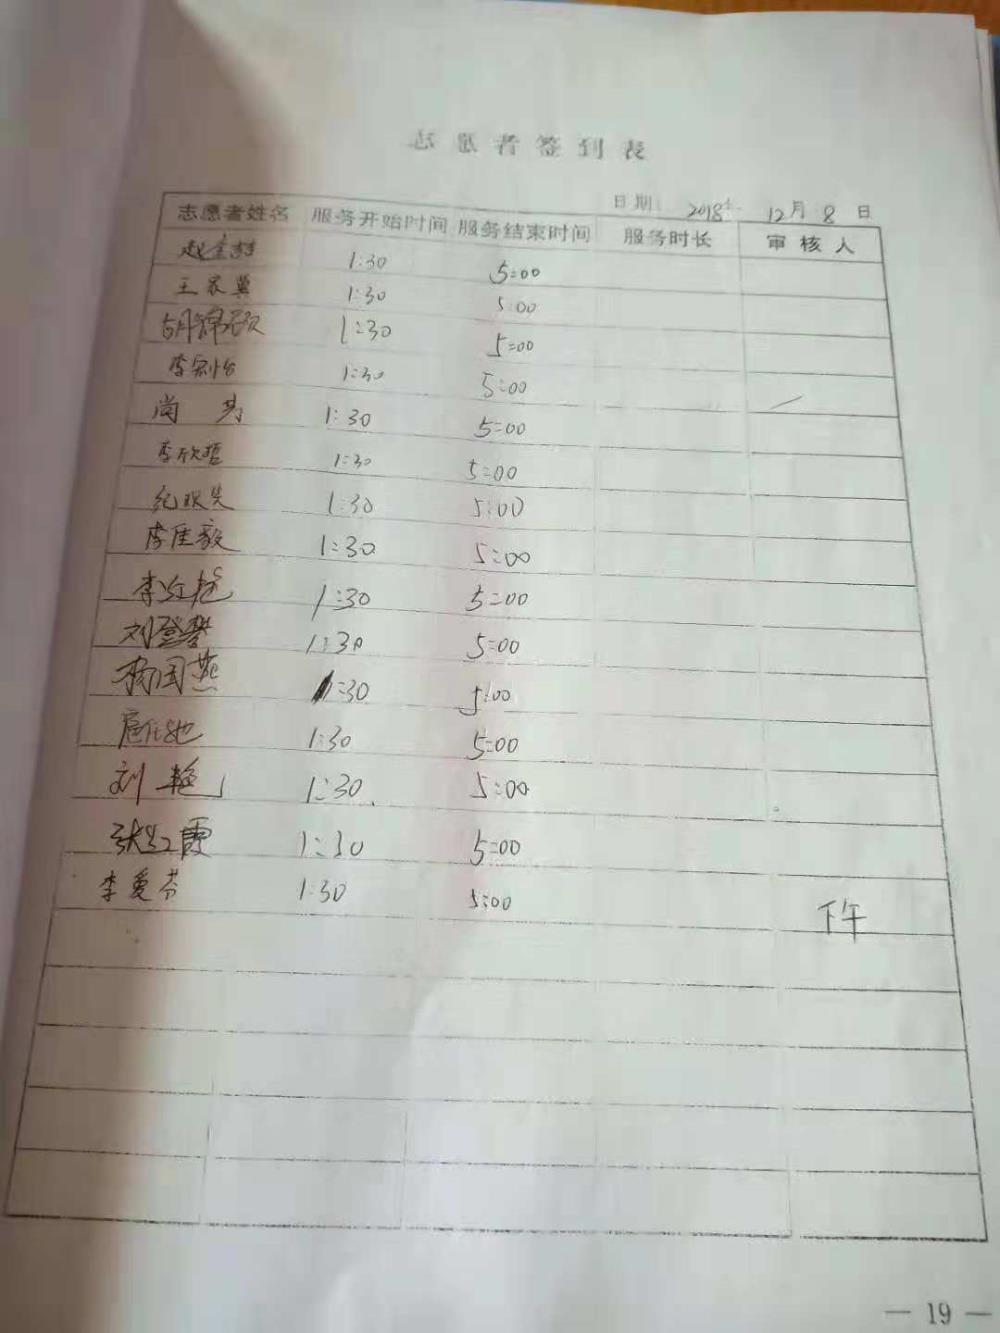 志愿者签到表
日期： 2018年 12月 8 日
志愿者姓名 服务开始时间 服务结束时间 服务时长 审核人
1:30 5:00
王家冀 1:30 5:00
胡锦欣 1:30 5:00
李 1:30 5:00
尚 1:30 5:00
李欣哲 1:30 5:00
纪 1:30 5:00
李佳毅 1:30 5:00
李红艳 1:30 5:00
刘登攀 1:30 5:00
杨国燕 1:30 5:00
1:30 5:00
刘艳 1:30 5:00
张红霞 1:30 5:00
李爱芬 1:30 5:00 下午
— 19 —